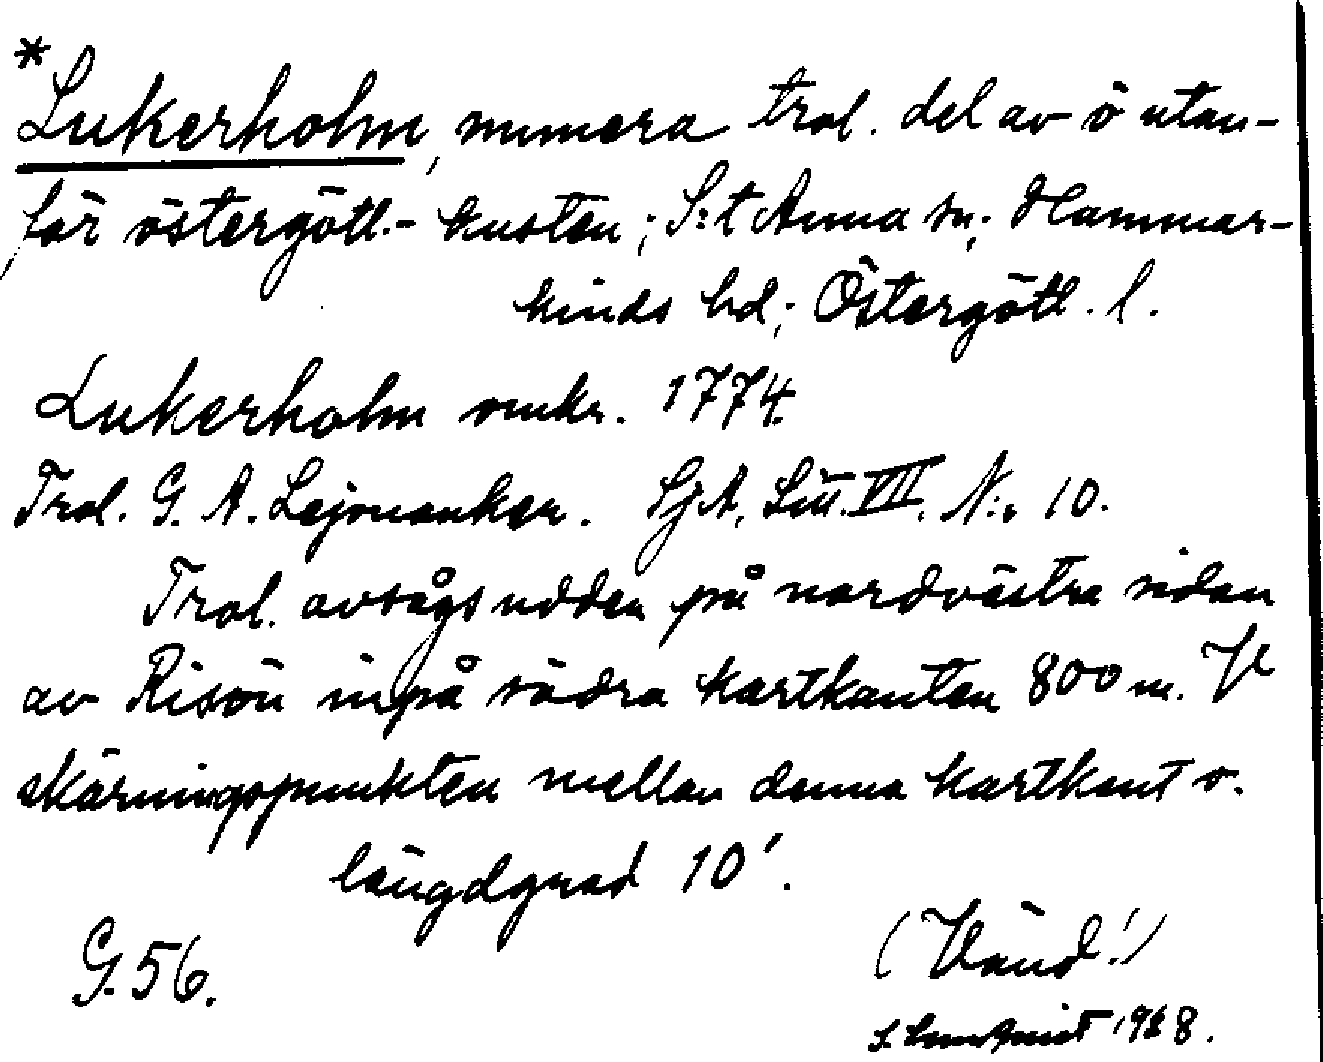 *Lukerholm, numera trol. del av ö utan-
för östergötl.-kusten; S:t Anna sn; Hammar-
kinds hd; Östergötl. l.
Lukerholm omkr. 1774.
Trol. G. A. Lejonanker. SjA, Litt. VIII. N:o 10.
Trol. avsågs udden på nordvästra sidan
av Risön inpå södra kartkanten 800 m. V
skärningspunkten mellan denna kartkant o.
längdgrad 10'.
G. 56.
(Vänd!)
1968.